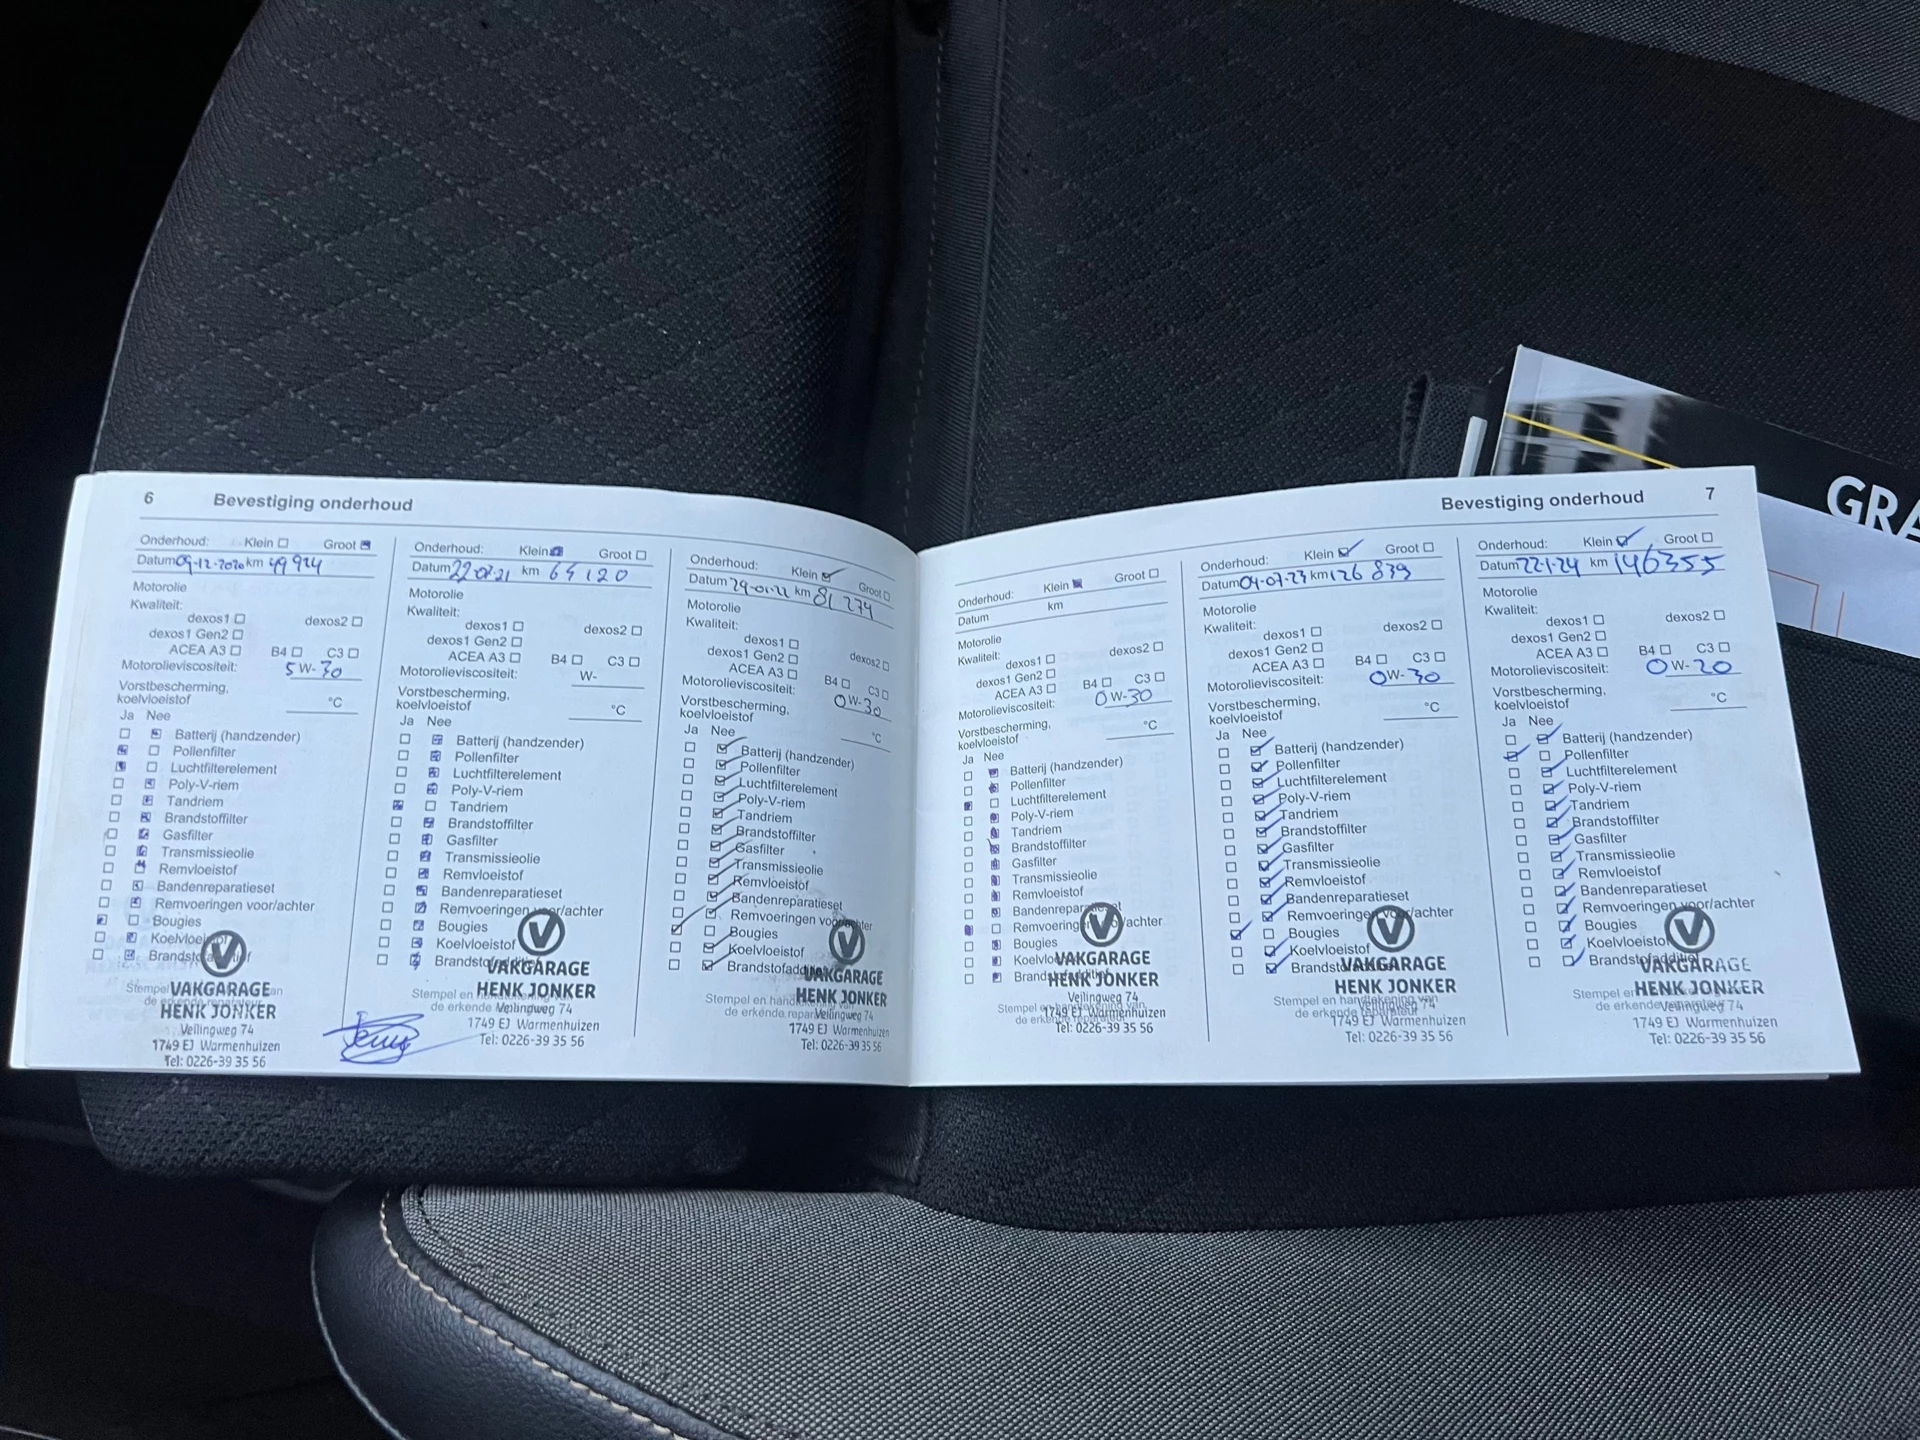 6 Bevestiging onderhoud
Onderhoud: Klein Groot
Datum 09-12-2020 km 49924
Motorolie
Kwaliteit:
dexos1 dexos2
dexos1 Gen2
ACEA A3 B4 C3
Motorolieviscositeit: 5 W-30
Vorstbescherming,
koelvloeistof °C
Ja Nee
Batterij (handzender)
Pollenfilter
Luchtfilterelement
Poly-V-riem
Tandriem
Brandstoffilter
Gasfilter
Transmissieolie
Remvloeistof
Bandenreparatieset
Remvoeringen voor/achter
Bougies
Stempel
VAKGARAGE
HENK JONKER
Veilingweg 74
1749 EJ Warmenhuizen
Tel: 0226-39 35 56
Onderhoud: Klein Groot
Datum km 64120
Motorolie
Kwaliteit:
dexos1 dexos2
dexos1 Gen2
ACEA A3 B4 C3
Motorolieviscositeit: W-
Vorstbescherming,
koelvloeistof °C
Ja Nee
Batterij (handzender)
Pollenfilter
Luchtfilterelement
Poly-V-riem
Tandriem
Brandstoffilter
Gasfilter
Transmissieolie
Remvloeistof
Bandenreparatieset
Remvoeringen voor/achter
Bougies
Koelvloeistof
VAKGARAGE
HENK JONKER
Stempel en
de erkende Veilingweg 74
1749 EJ Warmenhuizen
Tel: 0226-39 35 56
Onderhoud: Klein Groot
Datum 24-01-22 km 81 274
Motorolie
Kwaliteit:
dexos1
dexos1 Gen2 dexos2
ACEA A3 B4 C3
Motorolieviscositeit: 0 W-30
Vorstbescherming,
koelvloeistof °C
Ja Nee
Batterij (handzender)
Pollenfilter
Luchtfilterelement
Poly-V-riem
Tandriem
Brandstoffilter
Gasfilter
Transmissieolie
Remvloeistof
Bandenreparatieset
Remvoeringen voor/achter
Bougies
Koelvloeistof
Brandstofadditief
VAKGARAGE
HENK JONKER
Stempel en
de erkende Veilingweg 74
1749 EJ Warmenhuizen
Tel: 0226-39 35 56
Bevestiging onderhoud 7
Onderhoud: Klein Groot
Datum km
Motorolie
Kwaliteit:
dexos1 dexos2
dexos1 Gen2
ACEA A3 B4 C3
Motorolieviscositeit: 0 W-30
Vorstbescherming,
koelvloeistof °C
Ja Nee
Batterij (handzender)
Pollenfilter
Luchtfilterelement
Poly-V-riem
Tandriem
Brandstoffilter
Gasfilter
Transmissieolie
Remvloeistof
Bandenreparatieset
Remvoeringen voor/achter
Bougies
VAKGARAGE
HENK JONKER
Stempel en
de erkende Veilingweg 74
1749 EJ Warmenhuizen
Tel: 0226-39 35 56
Onderhoud: Klein Groot
Datum 04-07-23 km 126 839
Motorolie
Kwaliteit:
dexos1 dexos2
dexos1 Gen2
ACEA A3 B4 C3
Motorolieviscositeit: 0 W-30
Vorstbescherming,
koelvloeistof °C
Ja Nee
Batterij (handzender)
Pollenfilter
Luchtfilterelement
Poly-V-riem
Tandriem
Brandstoffilter
Gasfilter
Transmissieolie
Remvloeistof
Bandenreparatieset
Remvoeringen voor/achter
Bougies
Koelvloeistof
VAKGARAGE
HENK JONKER
Stempel en handtekening van
de erkende reparateur Veilingweg 74
1749 EJ Warmenhuizen
Tel: 0226-39 35 56
Onderhoud: Klein Groot
Datum 22-1-24 km 146355
Motorolie
Kwaliteit:
dexos1 dexos2
dexos1 Gen2
ACEA A3 B4 C3
Motorolieviscositeit: 0 W-20
Vorstbescherming,
koelvloeistof °C
Ja Nee
Batterij (handzender)
Pollenfilter
Luchtfilterelement
Poly-V-riem
Tandriem
Brandstoffilter
Gasfilter
Transmissieolie
Remvloeistof
Bandenreparatieset
Remvoeringen voor/achter
Bougies
Koelvloeistof
Brandstofadditief
VAKGARAGE
HENK JONKER
Stempel en
de erkende reparateur Veilingweg 74
1749 EJ Warmenhuizen
Tel: 0226-39 35 56
GRA